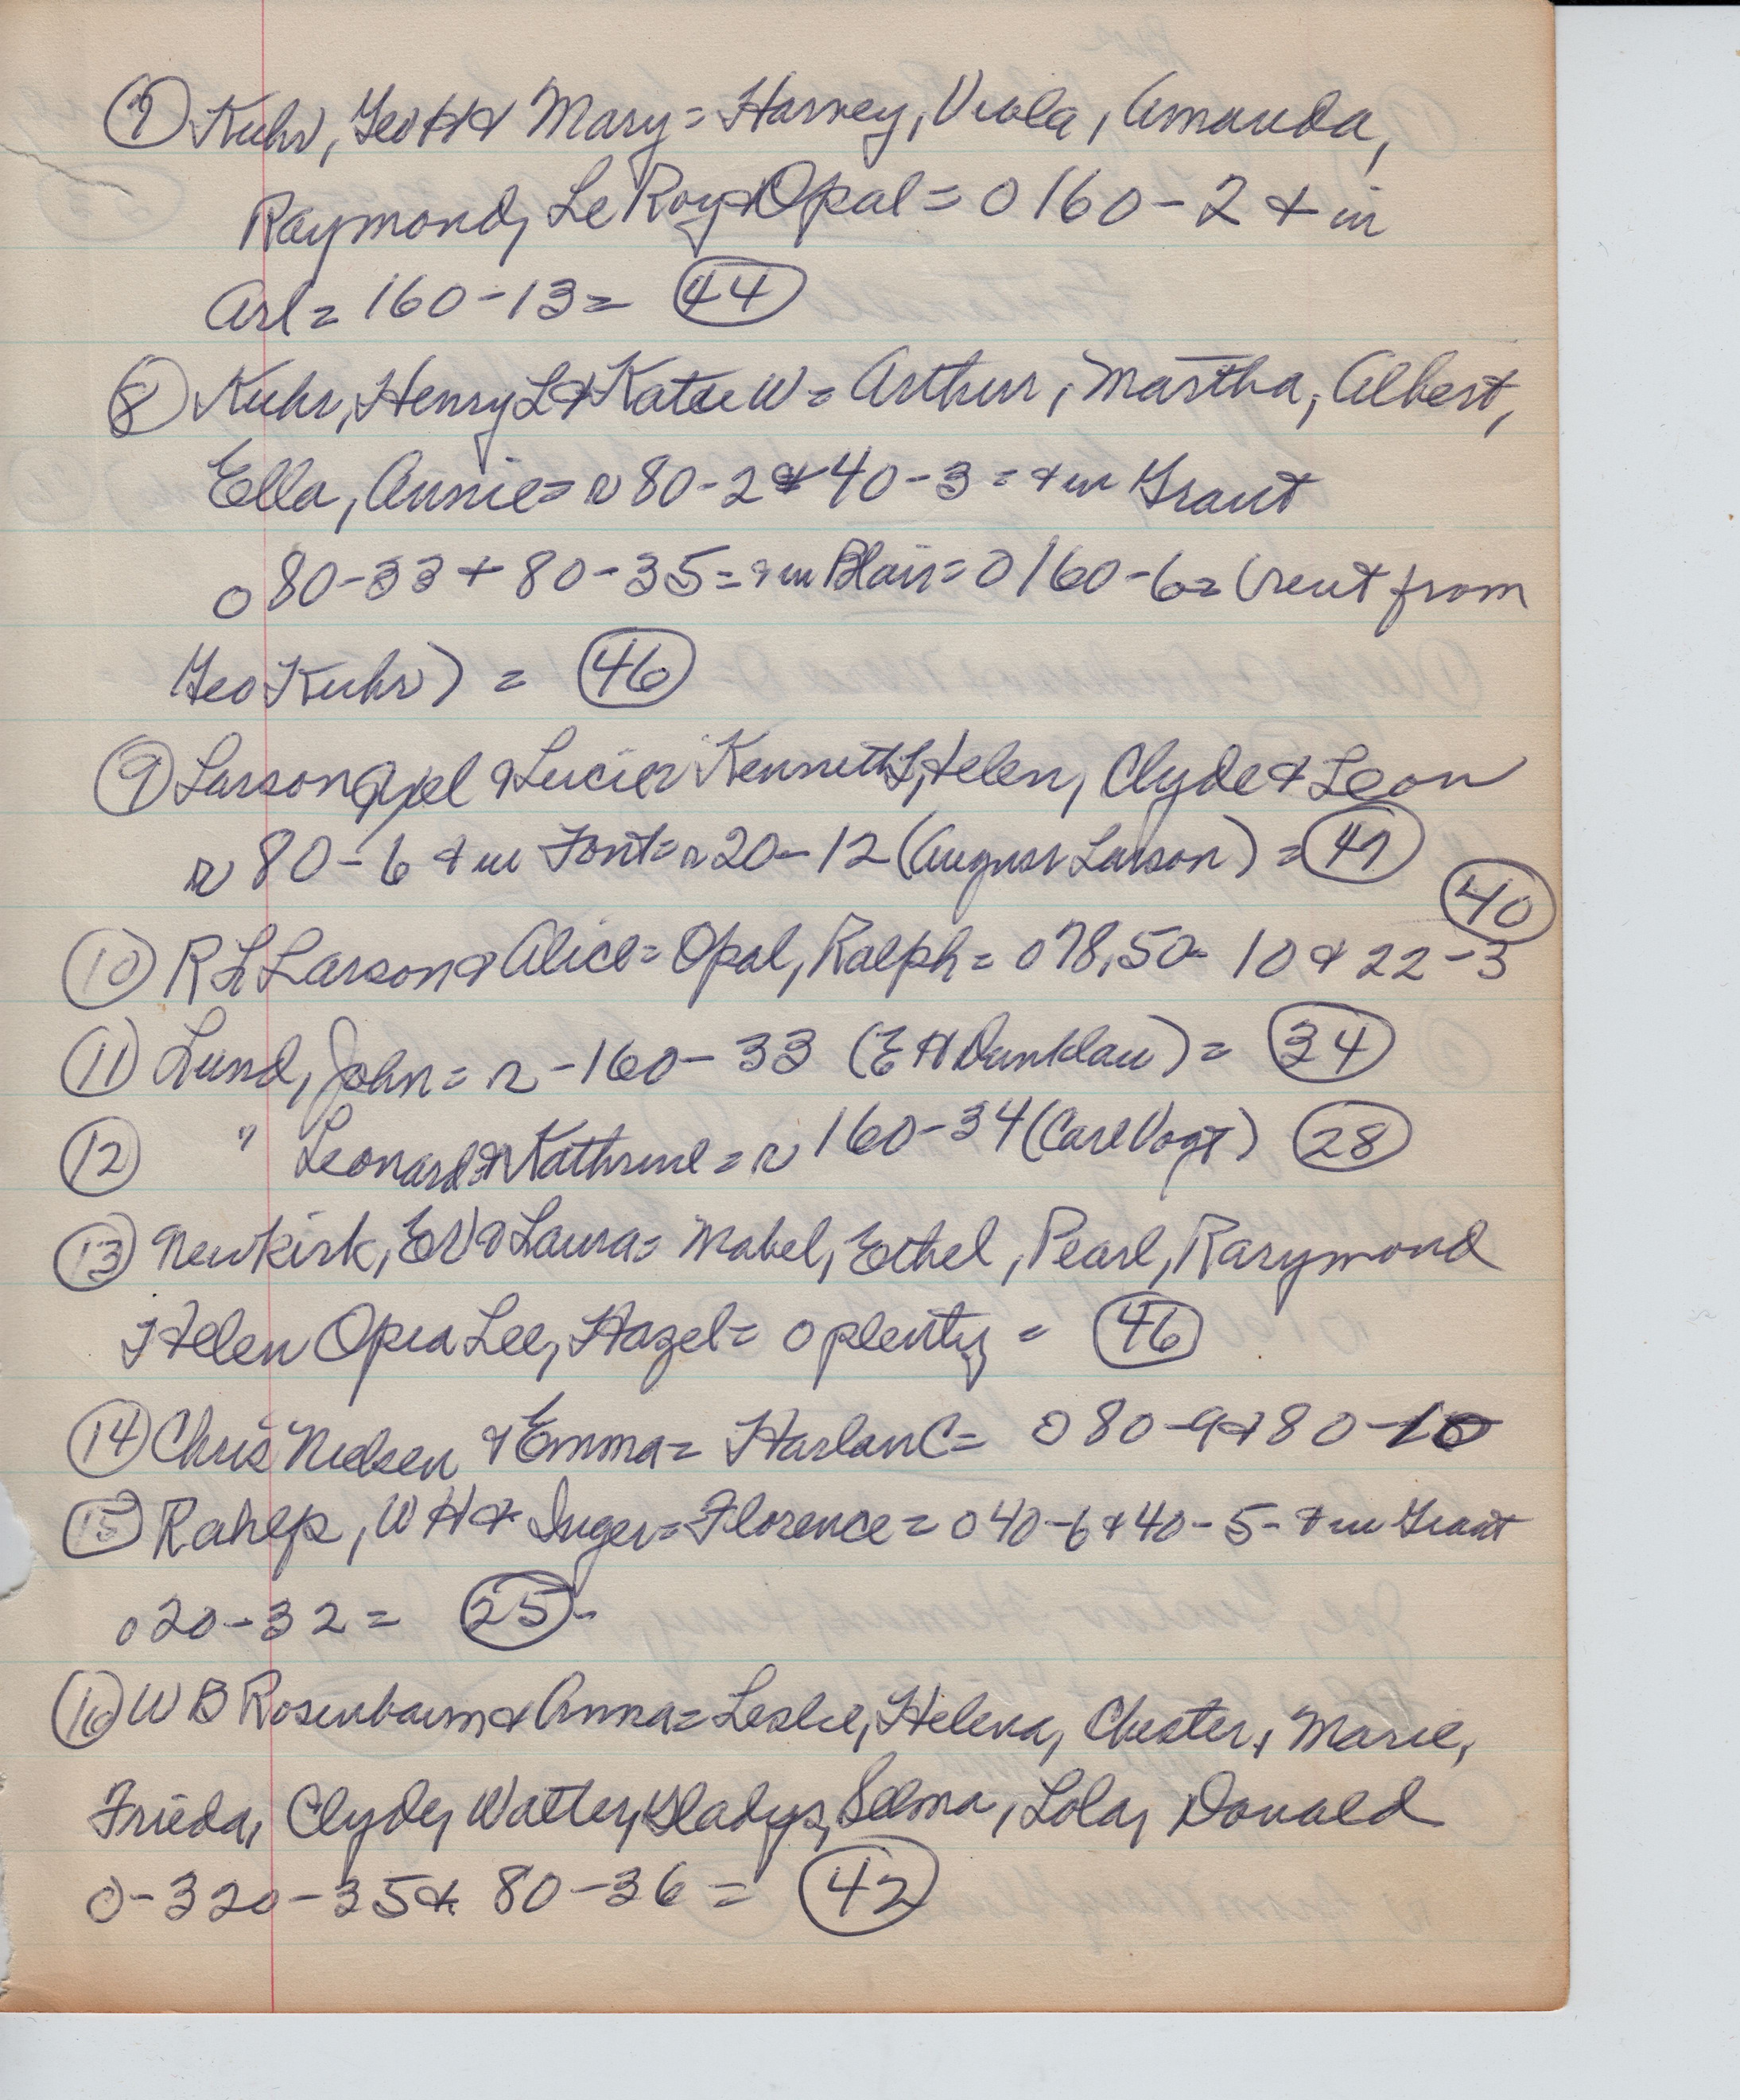 (7) Kuhr, Geo H & Mary = Harvey, Viola, Amanda,
Raymond, Le Roy & Opal = O 160 - 2 & in
Arl = 160 - 13 = (44)
(8) Kuhr, Henry L & Katie W = Arthur, Martha, Albert,
Ella, Annie = r 80 - 2 & 40 - 3 = & in Grant
o 80 - 33 + 80 - 35 = & in Blair = O 160 - 6 = (rent from
Geo Kuhr) = (46)
(9) Larson, Axel & Lucie = Kenneth L, Helen, Clyde & Leon
r 80 - 6 & in Font = r 20 - 12 (August Larson) = (47)
(40)
(10) R L Larson & Alice = Opal, Ralph = o 78,50 - 10 & 22 - 3
(11) Lund, John = r - 160 - 33 (E H Dunklau) = (34)
(12) " Leonard & Kathrine = r 160 - 34 (Carl Vogt) (28)
(13) Newkirk, EV & Laura = Mabel, Ethel, Pearl, Rarymond
Helen Opra Lee, Hazel = o plenty = (46)
(14) Chris Nielsen & Emma = Harlan C = O 80 - 9 & 80 - 10
(15) Rahlp, W H & Inger = Florence = O 40 - 6 & 40 - 5 - & in Grant
o 20 - 32 = (25) -
(16) W B Rosenbaum & Anna = Leslie, Helena, Chester, Marie,
Frieda, Clyde, Walter, Gladys, Selma, Lola, Donald
O - 320 - 35 & 80 - 36 = (42)